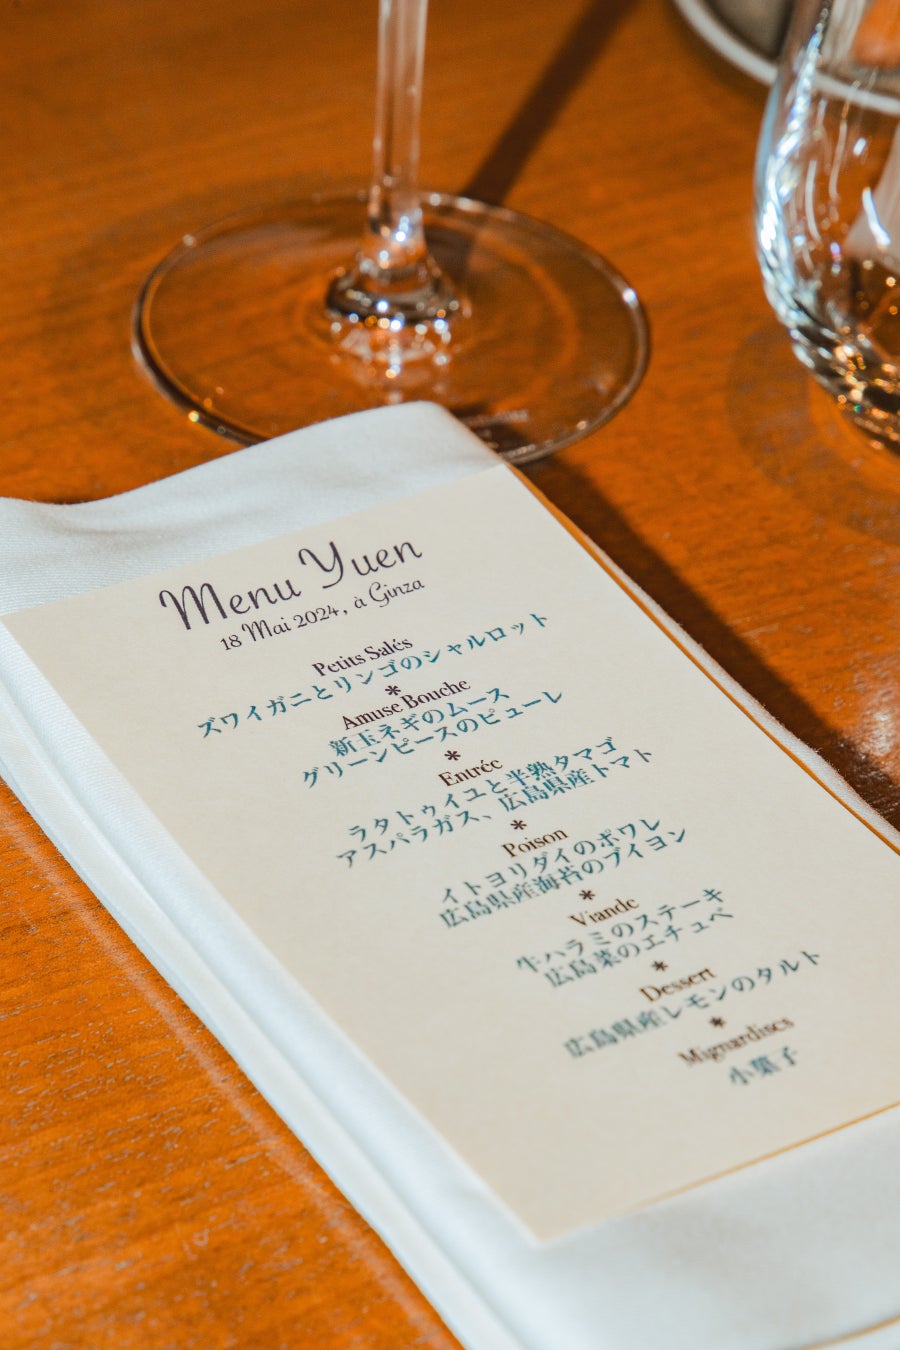 Menu Yuen
18 Mai 2024, à Ginza
Petits Salés
ズワイガニとリンゴのシャルロット
*
Amuse Bouche
新玉ネギのムース
グリーンピースのピューレ
*
Entrée
ラタトゥイユと半熟タマゴ
アスパラガス、広島県産トマト
*
Poison
イトヨリダイのポワレ
広島県産海苔のブイヨン
*
Viande
牛ハラミのステーキ
広島菜のエチュベ
*
Dessert
広島県産レモンのタルト
*
Mignardises
小菓子